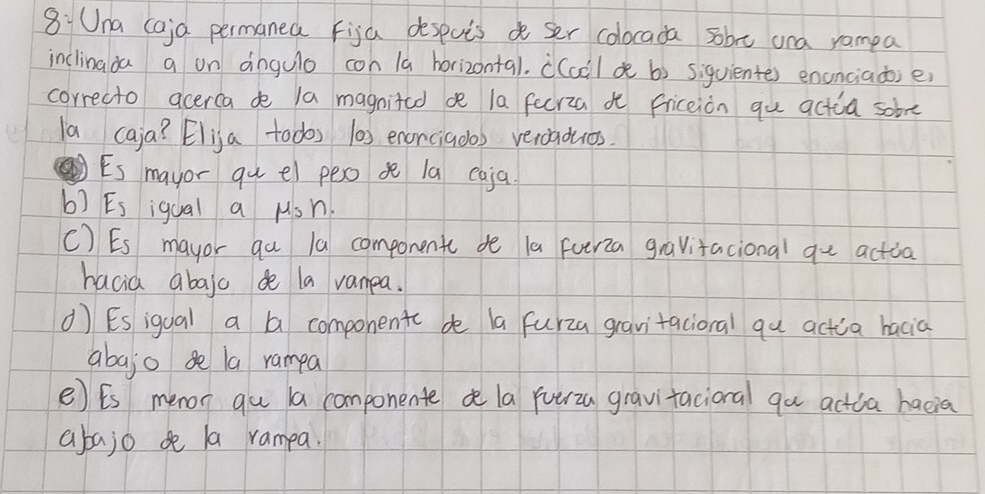 8- Una caja permanea fija después de ser colocada sobre una rampa
inclinada a un ángulo con la horizontal. ¿Cuál de los siguientes enunciados es
correcto acerca de la magnitud de la fuerza de fricción que actúa sobre
la caja? Elija todos los enunciados verdaderos.
a) Es mayor que el peso de la caja.
b) Es igual a μsn.
c) Es mayor que la componente de la fuerza gravitacional que actúa
hacia abajo de la rampa.
d) Es igual a la componente de la fuerza gravitacional que actúa hacia
abajo de la rampa
e) Es menor que la componente de la fuerza gravitacional que actúa hacia
abajo de la rampa.